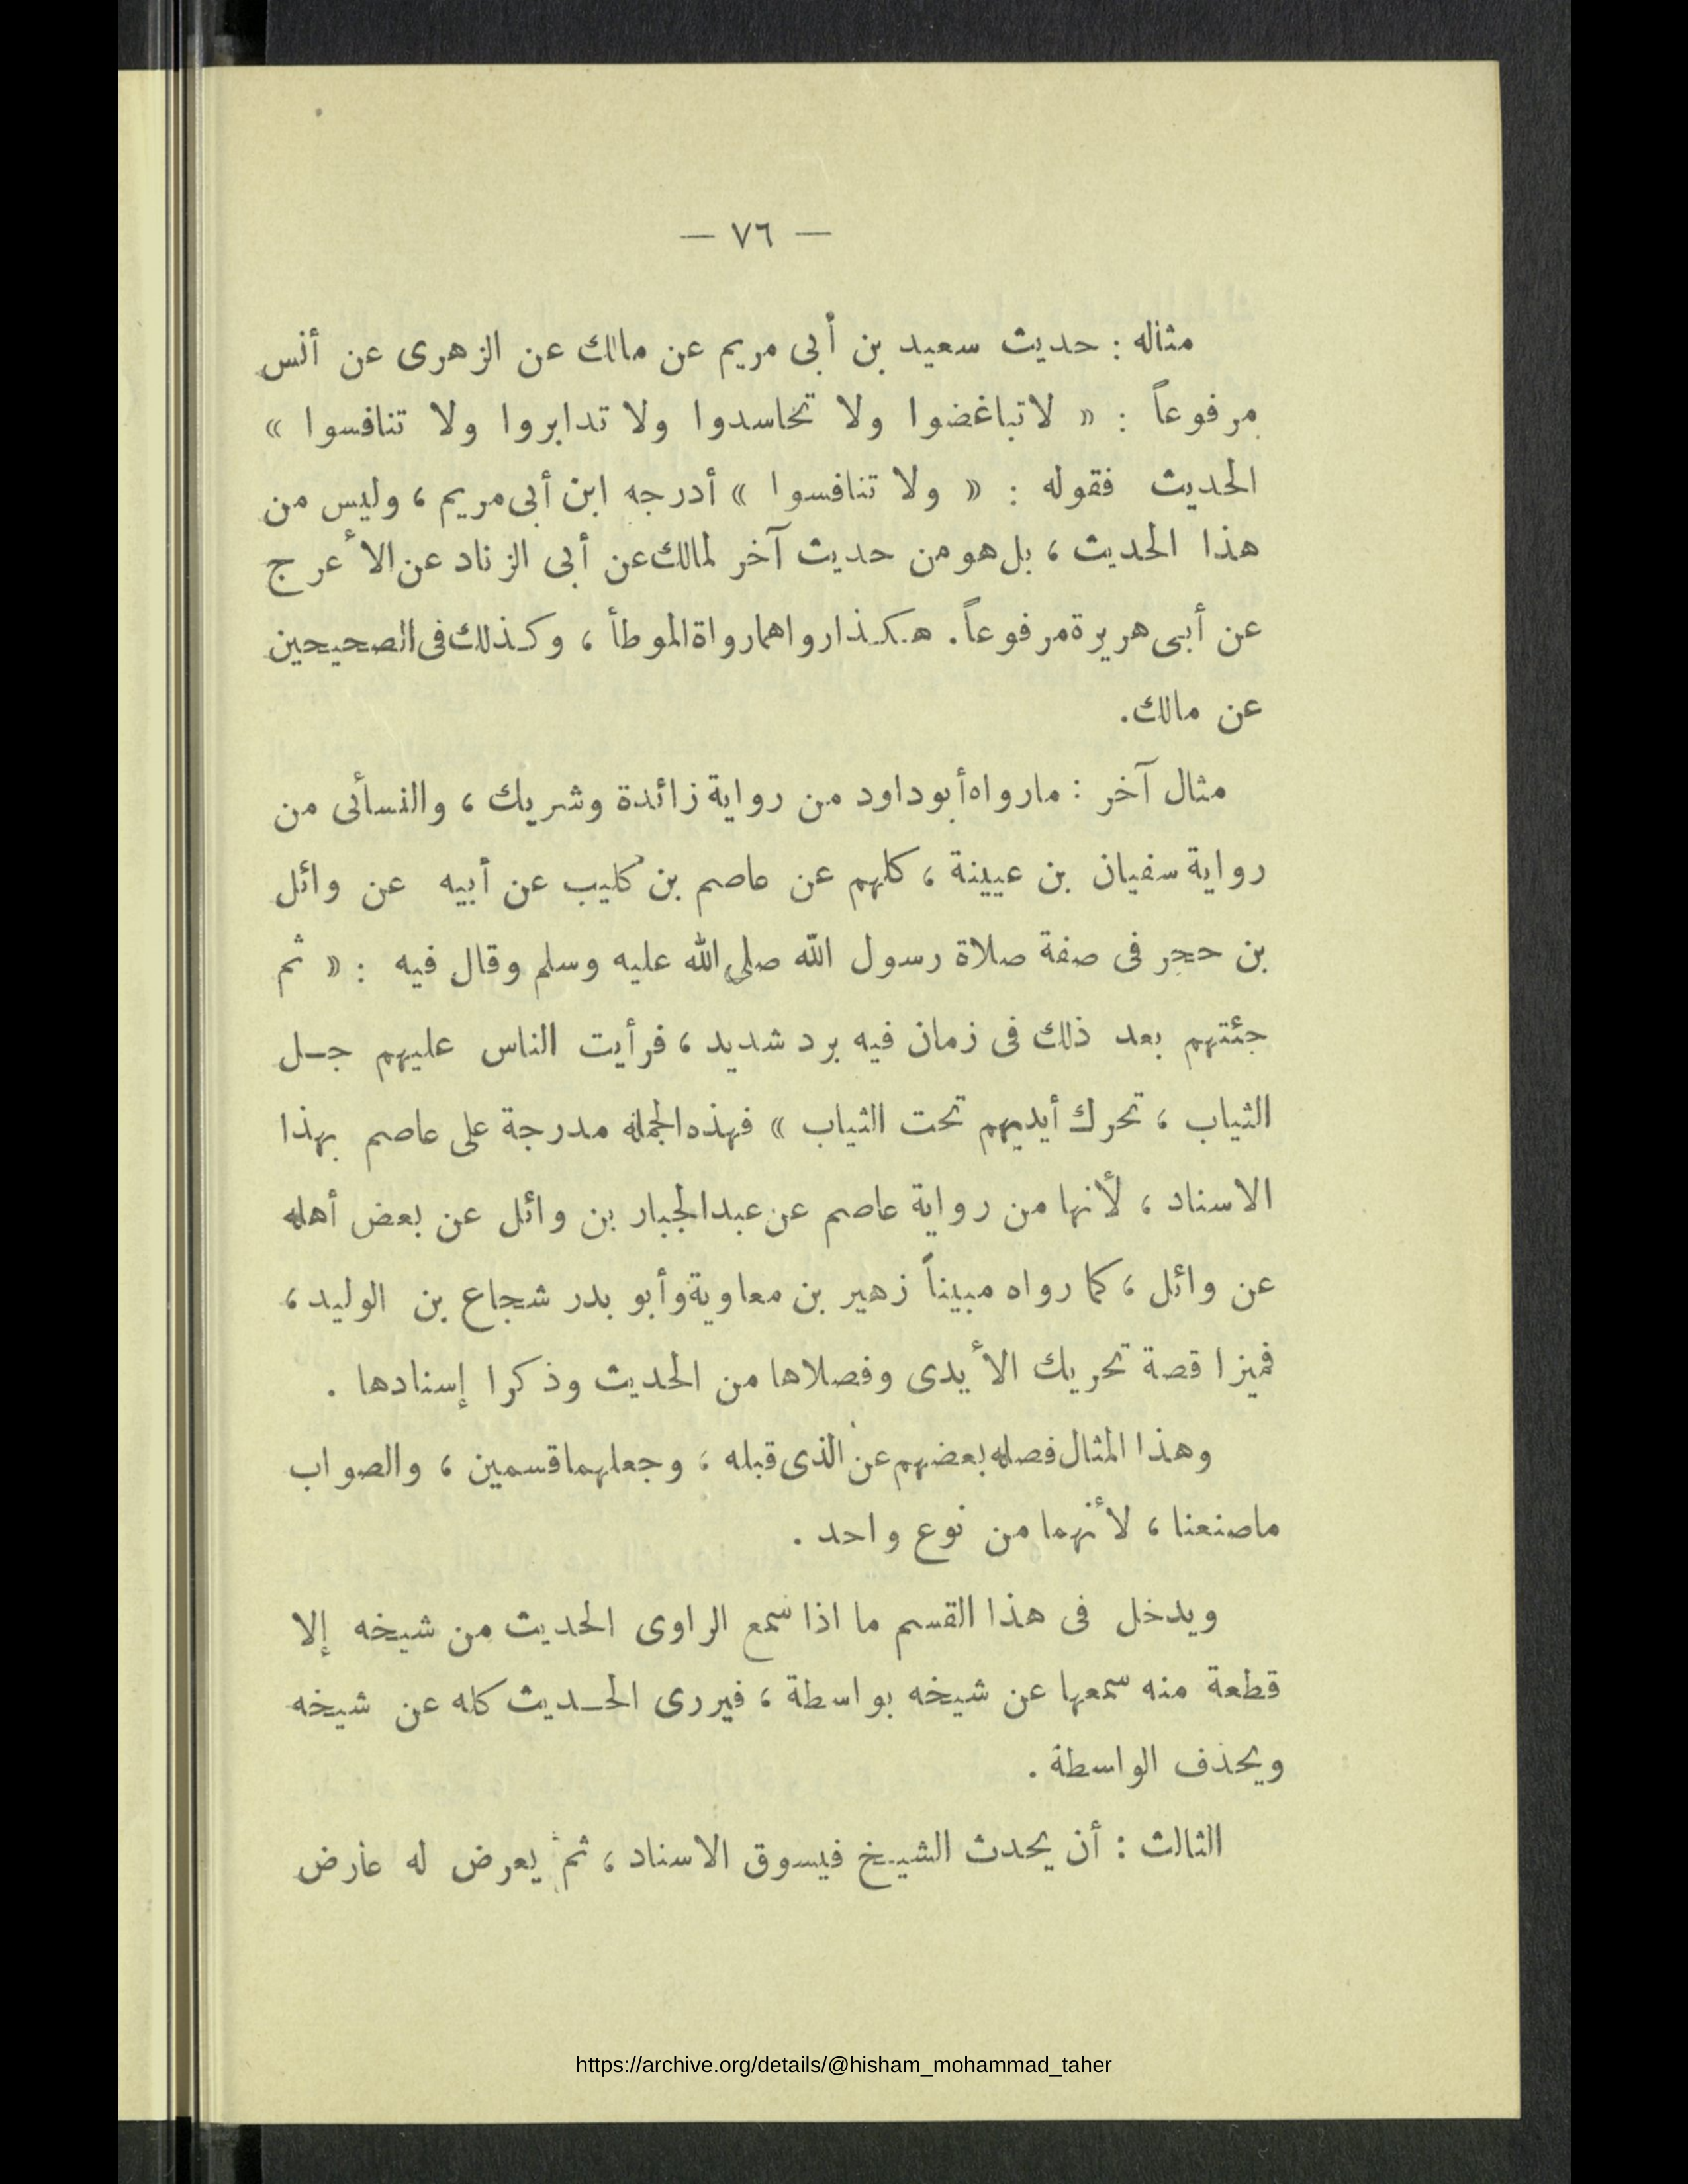 — ٧٦ —
مثاله : حديث سعيد بن أبى مريم عن مالك عن الزهرى عن أنس
مرفوعاً : « لاتباغضوا ولا تحاسدوا ولا تدابروا ولا تنافسوا »
الحديث فقوله : « ولا تنافسوا » أدرجه ابن أبى مريم ، وليس من
هذا الحديث ، بل هو من حديث آخر لمالك عن أبى الزناد عن الأعرج
عن أبى هريرة مرفوعاً . هكذا رواهما رواة الموطأ ، وكذلك فى الصحيحين
عن مالك .
مثال آخر : مارواه أبوداود من رواية زائدة وشريك ، والنسأئى من
رواية سفيان بن عيينة ، كلهم عن عاصم بن كليب عن أبيه عن وائل
بن حجر فى صفة صلاة رسول الله صلى الله عليه وسلم وقال فيه : « ثم
جئتهم بعد ذلك فى زمان فيه برد شديد ، فرأيت الناس عليهم جل
الثياب ، تحرك أيديهم تحت الثياب » فهذه الجملة مدرجة على عاصم بهذا
الاسناد ، لأنها من رواية عاصم عن عبدالجبار بن وائل عن بعض أهله
عن وائل ، كما رواه مبيناً زهير بن معاوية وأبو بدر شجاع بن الوليد ،
فميزا قصة تحريك الأيدى وفصلاها من الحديث وذكرا إسنادها .
وهذا المثال فصله بعضهم عن الذى قبله ، وجعلهما قسمين ، والصواب
ماصنعنا ، لأنهما من نوع واحد .
ويدخل فى هذا القسم ما اذا سمع الراوى الحديث من شيخه إلا
قطعة منه سمعها عن شيخه بواسطة ، فيروى الحديث كله عن شيخه
ويحذف الواسطة .
الثالث : أن يحدث الشيخ فيسوق الاسناد ، ثم يعرض له عارض
https://archive.org/details/@hisham_mohammad_taher